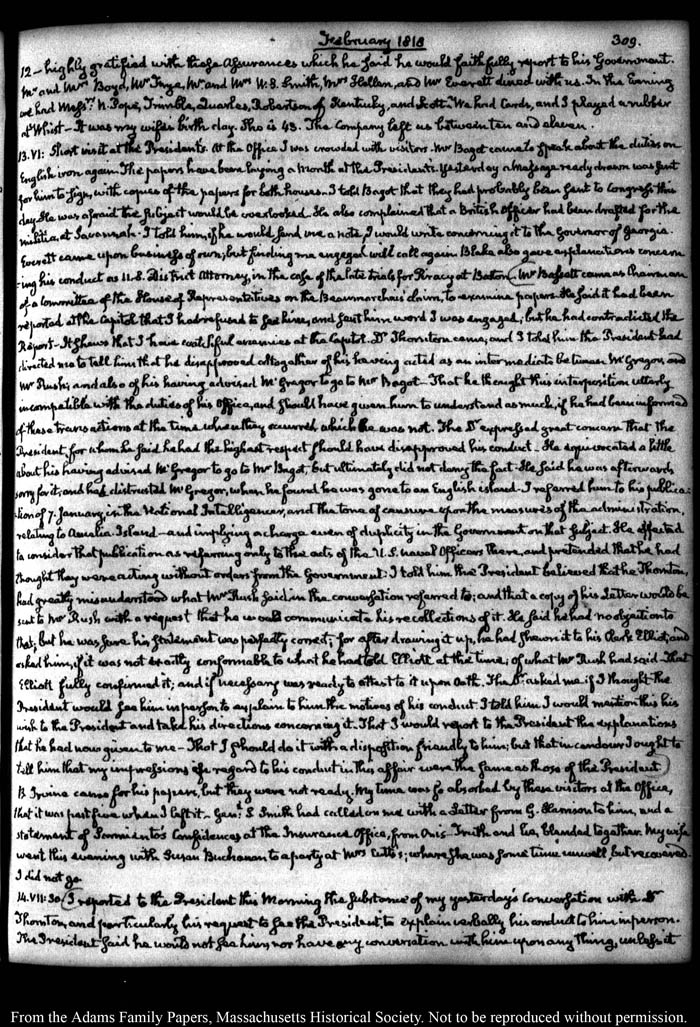 February 1818
309.
12 — highly gratified with these Assurances which he said he would faithfully report to his Government.
Mr and Mrs Boyd, Mr Frye, Mr and Mrs W. S. Smith, Mrs Hellen, and Mr Everett dined with us. In the Evening
we had Messrs N. Pope, Trimble, Quarles, Robertson of Kentucky, and Scott. We had Cards, and I played a rubber
at Whist — It was my wife's birth day. She is 43. The Company left us between ten and eleven.
13. VI: Short visit at the President's. At the Office I was crowded with visitors. Mr Bagot came to speak about the duties on
English iron again. The papers have been laying a Month at the President's. Yesterday a Message ready drawn was sent
for him to sign, with copies of the papers for both houses. I told Bagot that they had probably been sent to Congress this
day. He was afraid the subject would be overlooked. He also complained that a British Officer had been drafted for the
militia at Savannah. I told him, if he would send me a note, I would write concerning it to the Governor of Georgia.
Everett came upon business of his own; but finding me engaged will call again. Blake also gave explanations concern
-ing his conduct as U. S. District Attorney, in the case of the late trials for Piracy at Boston (Mr Bassett came as Chairman
of a Committee of the House of Representatives on the Beaumarchais claim, to examine papers. He said it had been
reported at the Capitol that I had refused to see him, and sent him word I was engaged, but he had contradicted the
Report — It shews that I have watchful enemies at the Capitol. Dr Thornton came, and I told him the President had
directed me to tell him that he disapproved altogether of his having acted as an intermediate between McGregor, and
Mr Rush; and also of his having advised McGregor to go to Mr Bagot — That he thought this interposition utterly
incompatible with the duties of his Office, and should have given him to understand as much, if he had been informed
of these transactions at the time when they occurred, which he was not. The Dr expressed great concern that the
President, for whom he said he had the highest respect should have disapproved his conduct — He equivocated a little
about his having advised McGregor to go to Mr Bagot, but ultimately did not deny the fact. He said he was afterwards
sorry for it, and had distrusted McGregor, when he found he was gone to an English island. I referred him to his publica
-tion of 7. January, in the National Intelligencer, and the tone of censure upon the measures of the administration,
relating to Amelia Island — and implying a charge even of duplicity in the Government on that subject. He affected
to consider that publication as referring only to the acts of the U. S. naval Officers there, and pretended that he had
thought they were acting without orders from the Government: I told him the President believed that he Thornton,
had greatly misunderstood what Mr Rush said in the conversation referred to; and that a copy of his Letter would be
sent to Mr Rush with a request that he would communicate his recollections of it. He said he had no objection to
that; but he was sure his statement was perfectly correct; for after drawing it up, he had shewn it to his Clerk Elliot, and
asked him, if it was not exactly conformable to what he had told Elliott at the time, of what Mr Rush had said — That
Elliott fully confirmed it; and if necessary was ready to attest to it upon Oath. The Dr asked me if I thought the
President would see him in person to explain to him the motives of his conduct. I told him I would mention this his
wish to the President and take his directions concerning it. That I would report to the President the explanations
that he had now given to me — That I should do it with a disposition friendly to him; but that in candour I ought to
tell him that my impressions in regard to his conduct in this affair were the same as those of the President)
B. Irvine came for his papers, but they were not ready. My time was so absorbed by these visitors at the Office,
that it was past five when I left it — Genl S. Smith had called on me with a Letter from G. Harrison to him, and a
statement of Sarmiento's Confidences at the Insurance Office, from Onis. Truth and lies, blended together. My wife
went this evening with Susan Buchanan to a party at Mrs Cutts's; where she was some time unwell, but recovered.
I did not go.
14. VII: 30 (I reported to the President this Morning the substance of my yesterday's Conversation with Dr
Thornton, and particularly his request to see the President, to explain verbally his conduct to him in person.
The President said he would not see him, nor have any conversation with him upon any thing, unless it
From the Adams Family Papers, Massachusetts Historical Society. Not to be reproduced without permission.